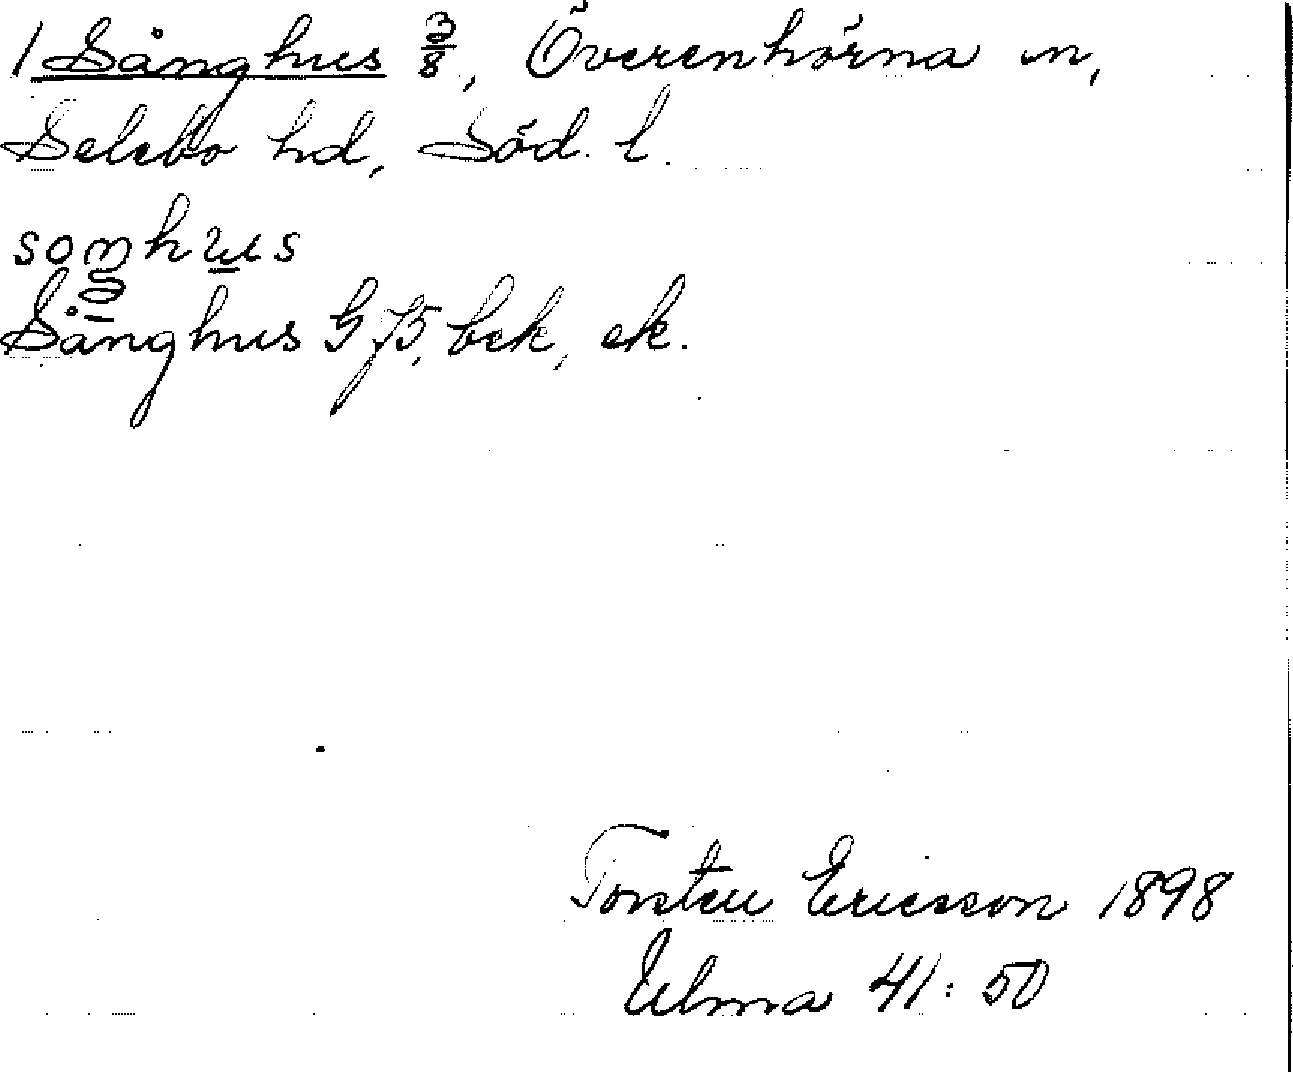 1 Sånghus 3/8, Överenhörna sn,
Selebo hd, Söd. l.
soŋhus
Sånghus G 75, bek, ek.
Torsten Ericsson 1898
Ulma 41:50